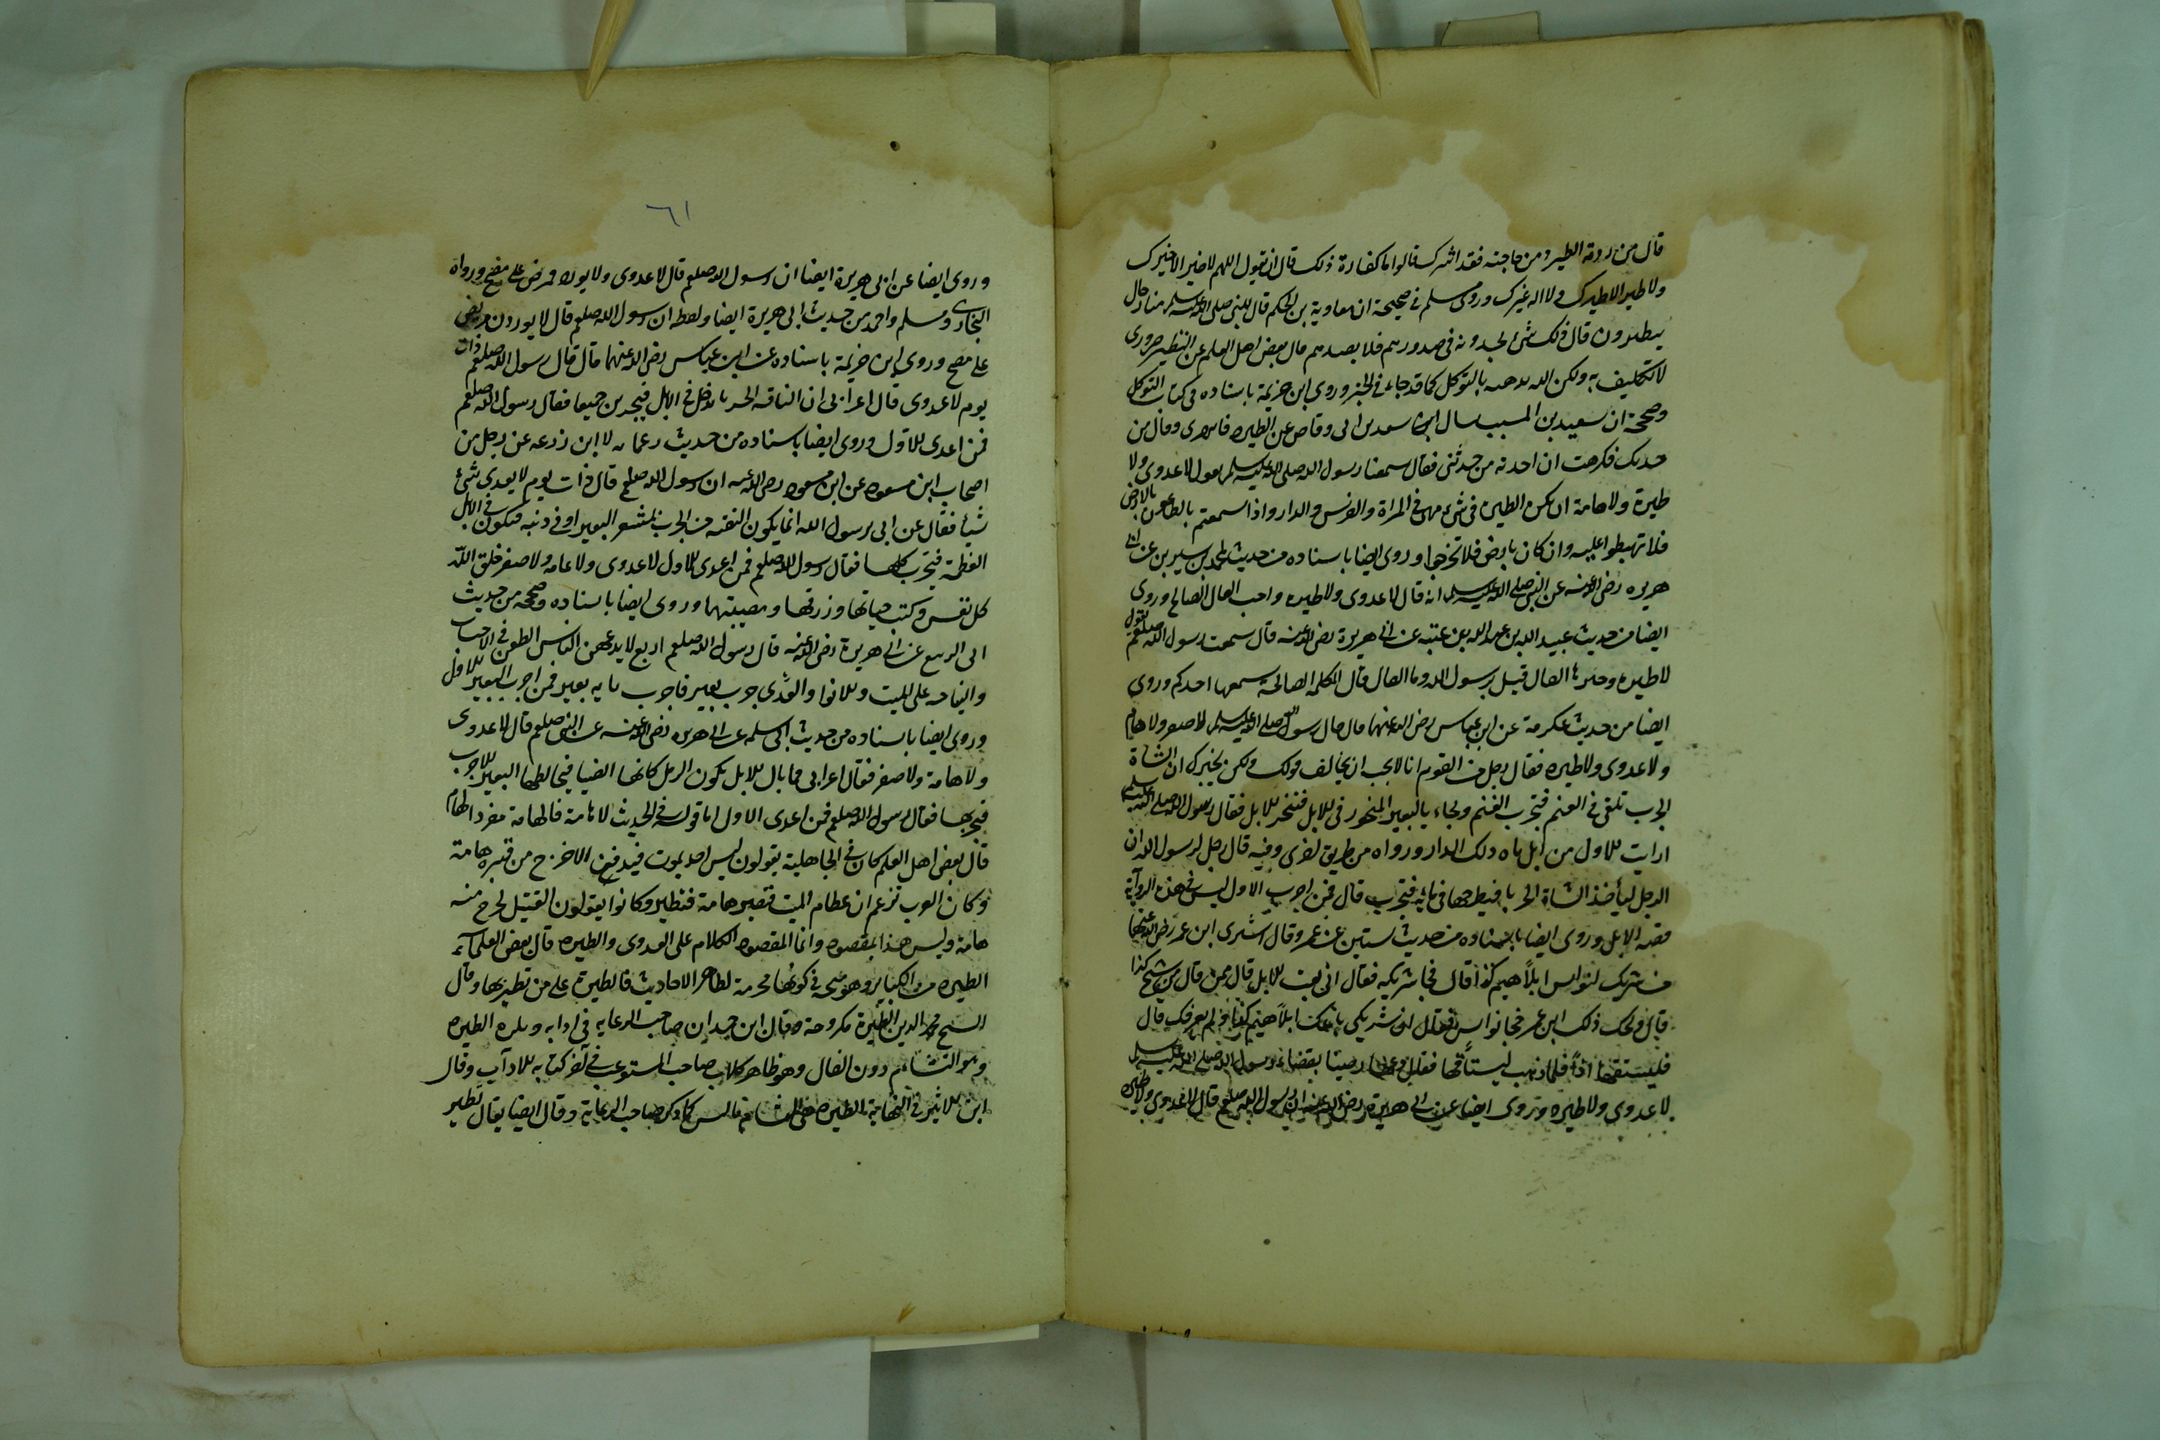 قال من ردته الطيرة من حاجته فقد اشرك قالوا ما كفارة ذلك قال ان تقول اللهم لا خير الا خيرك
ولا طير الا طيرك ولا اله غيرك وروى مسلم في صحيحه ان معاوية بن الحكم قال للنبي صلى الله عليه وسلم منا رجال
يتطيرون قال ذلك شئ يجدونه في صدورهم فلا يصدهم قال بعض اهل العلم عن التطير ضرورى
لا تكليف به ولكن الله يذهبه بالتوكل كما قد جاء في الخبر وروى ابن خزيمة باسناده في كتاب التوكل
وصححه ان سعيد بن المسيب سال سعد بن ابى وقاص عن الطيره وقال من
حدثك فكرهت ان احدثه من حدثنى فقال سمعنا رسول الله صلى الله عليه وسلم يقول لا عدوى ولا
طيرة ولا هامة ان تكن الطيره في شئ فهى في المراة والفرس والدار واذا سمعتم بالطاعون بالارض
فلا تهبطوا عليه وان كان بارض فلا تخرجوا وروى ايضا باسناده من حديث محمد بن سيرين عن ابى
هريره رضى الله عنه عن النبي صلى الله عليه وسلم انه قال لا عدوى ولا طيره واحب الفال الصالح وروى
ايضا من حديث عبيد الله بن عبد الله بن عتبة عن ابى هريرة رضى الله عنه قال سمعت رسول الله صلعم يقول
لا طيره وخيرها الفال قيل يرسول الله وما الفال قال الكلمة الصالحة يسمعها احدكم وروى
ايضا من حديث عكرمة عن ابن عباس رضى الله عنهما قال قال رسول الله صلى الله عليه وسلم لا صفر ولا هام
ولا عدوى ولا طيره فقال رجل من القوم انا لا نحب ان نخالف قولك ولكن نخبرك ان الشاة
الجرب تلقى في الغنم فتجرب الغنم ولجاء بالبعير المنخور في للابل فتنخر للابل فقال رسول الله صلى الله عليه وسلم
ارايت للاول من ورواه من طريق اخرى وفيه قال رجل لرسول الله ان
الرجل ليأخذ الشاة الجربا فيطرحها في مائه فتجرب قال فمن اجرب الاول ليس في هذه الرواية
قصه الابل وروى ايضا باسناده من حديث عن عمر وقال اشترى ابن عمر رضى الله عنهما
من شريك لنواس ابلاً هيم كذا قال فجا شريكه فقال انى بعت للابل قال ممن قال من شيخ كذا
قال ويحك ذلك ابن عمر فجا نواس فقال ان شريكى باعك ابلاً هيم كذا ولم يعرفك قال
فليستقها اذاً فلما ذهب ليستأقها فقال دعها رضينا بقضاء رسول الله صلى الله عليه وسلم
لا عدوى ولا طيره وروى ايضا عن ابى هريرة رضى الله عنه ان رسول الله صلعم قال لا عدوى ولا طيره
٦١
وروى ايضا عن ابى هريرة ايضا ان رسول الله صلعم قال لا عدوى ولا يورد ممرض على مصح ورواه
البخارى ومسلم واحمد من حديث ابى هريرة ايضا ولفظه ان رسول الله صلعم قال لا يوردن ممرض
على مصح وروى ابن خزيمة باسناده عن ابن عباس رضى الله عنهما قال قال رسول الله صلعم ذات
يوم لا عدوى قال اعرابى ان الناقه الجربا تدخل في الابل فيجربن جميعا فقال رسول الله صلعم
فمن اعدى للاول وروى ايضا باسناده من حديث ابن زرعه عن رجل من
اصحاب ابن مسعود عن ابن مسعود رضى الله عنه ان رسول الله صلعم قال ذات يوم لا يعدى شئ
شيأ فقال عن ابى يرسول الله انما يكون النقبه من الجرب بمشفر البعير او في ذنبه فتكون في الابل
العظيمة فتجرب كلها فقال رسول الله صلعم فمن اعدى للاول لا عدوى ولا هامه ولا صفر خلق الله
كل نفس وكتب حياتها وزرقها ومصيبتها وروى ايضا باسناده وصححه من حديث
ابى الربيع عن ابى هريرة رضى الله عنه قال رسول الله صلعم اربع لا يدعهن الناس الطعن في الاحساب
والنياحه على الميت وللانوا والعدى جرب بعير فاجرب مايه بعير فمن اجرب البعير للاول
وروى ايضا باسناده من حديث ابى سلمه عن ابى هريره رضى الله عنه عن النبي صلعم قال لا عدوى
ولا هامة ولا صفر فقال اعرابى فما بال للابل تكون الرمل كانها الضبا فيخالطها البعير للاجرب
فيجربها فقال رسول الله صلعم فمن اعدى الاول اما قوله في الحديث لا هامة فالهامة مفرد الهام
قال بعض اهل العلم كان في الجاهلية يقولون ليس احد يموت فيدفن الا خرج من قبره هامة
وكان العرب تزعم ان عظام الميت تصير هامة فتطير وكانوا يقولون القتيل يخرج منه
هامة وليس هذا المقصود وانما المقصود الكلام على العدوى والطيره قال بعض العلماء
الطيره من الكبائر وهو متجه في كونها محرمة لظاهر الاحاديث فالطيرة على من تطير بها وقال
الشيخ مجد الدين الطيرة مكروهة وقال ابن حمدان صاحب الرعايه في ادابه وتكره الطيره
وهو التشاؤم دون الفال وهو ظاهر كلام صاحب المستوعب في آخر كتابه للادآب وقال
ابن للاثير في النهاية الطيره كما ذكر صاحب الرعاية وقال ايضا يقال تطير